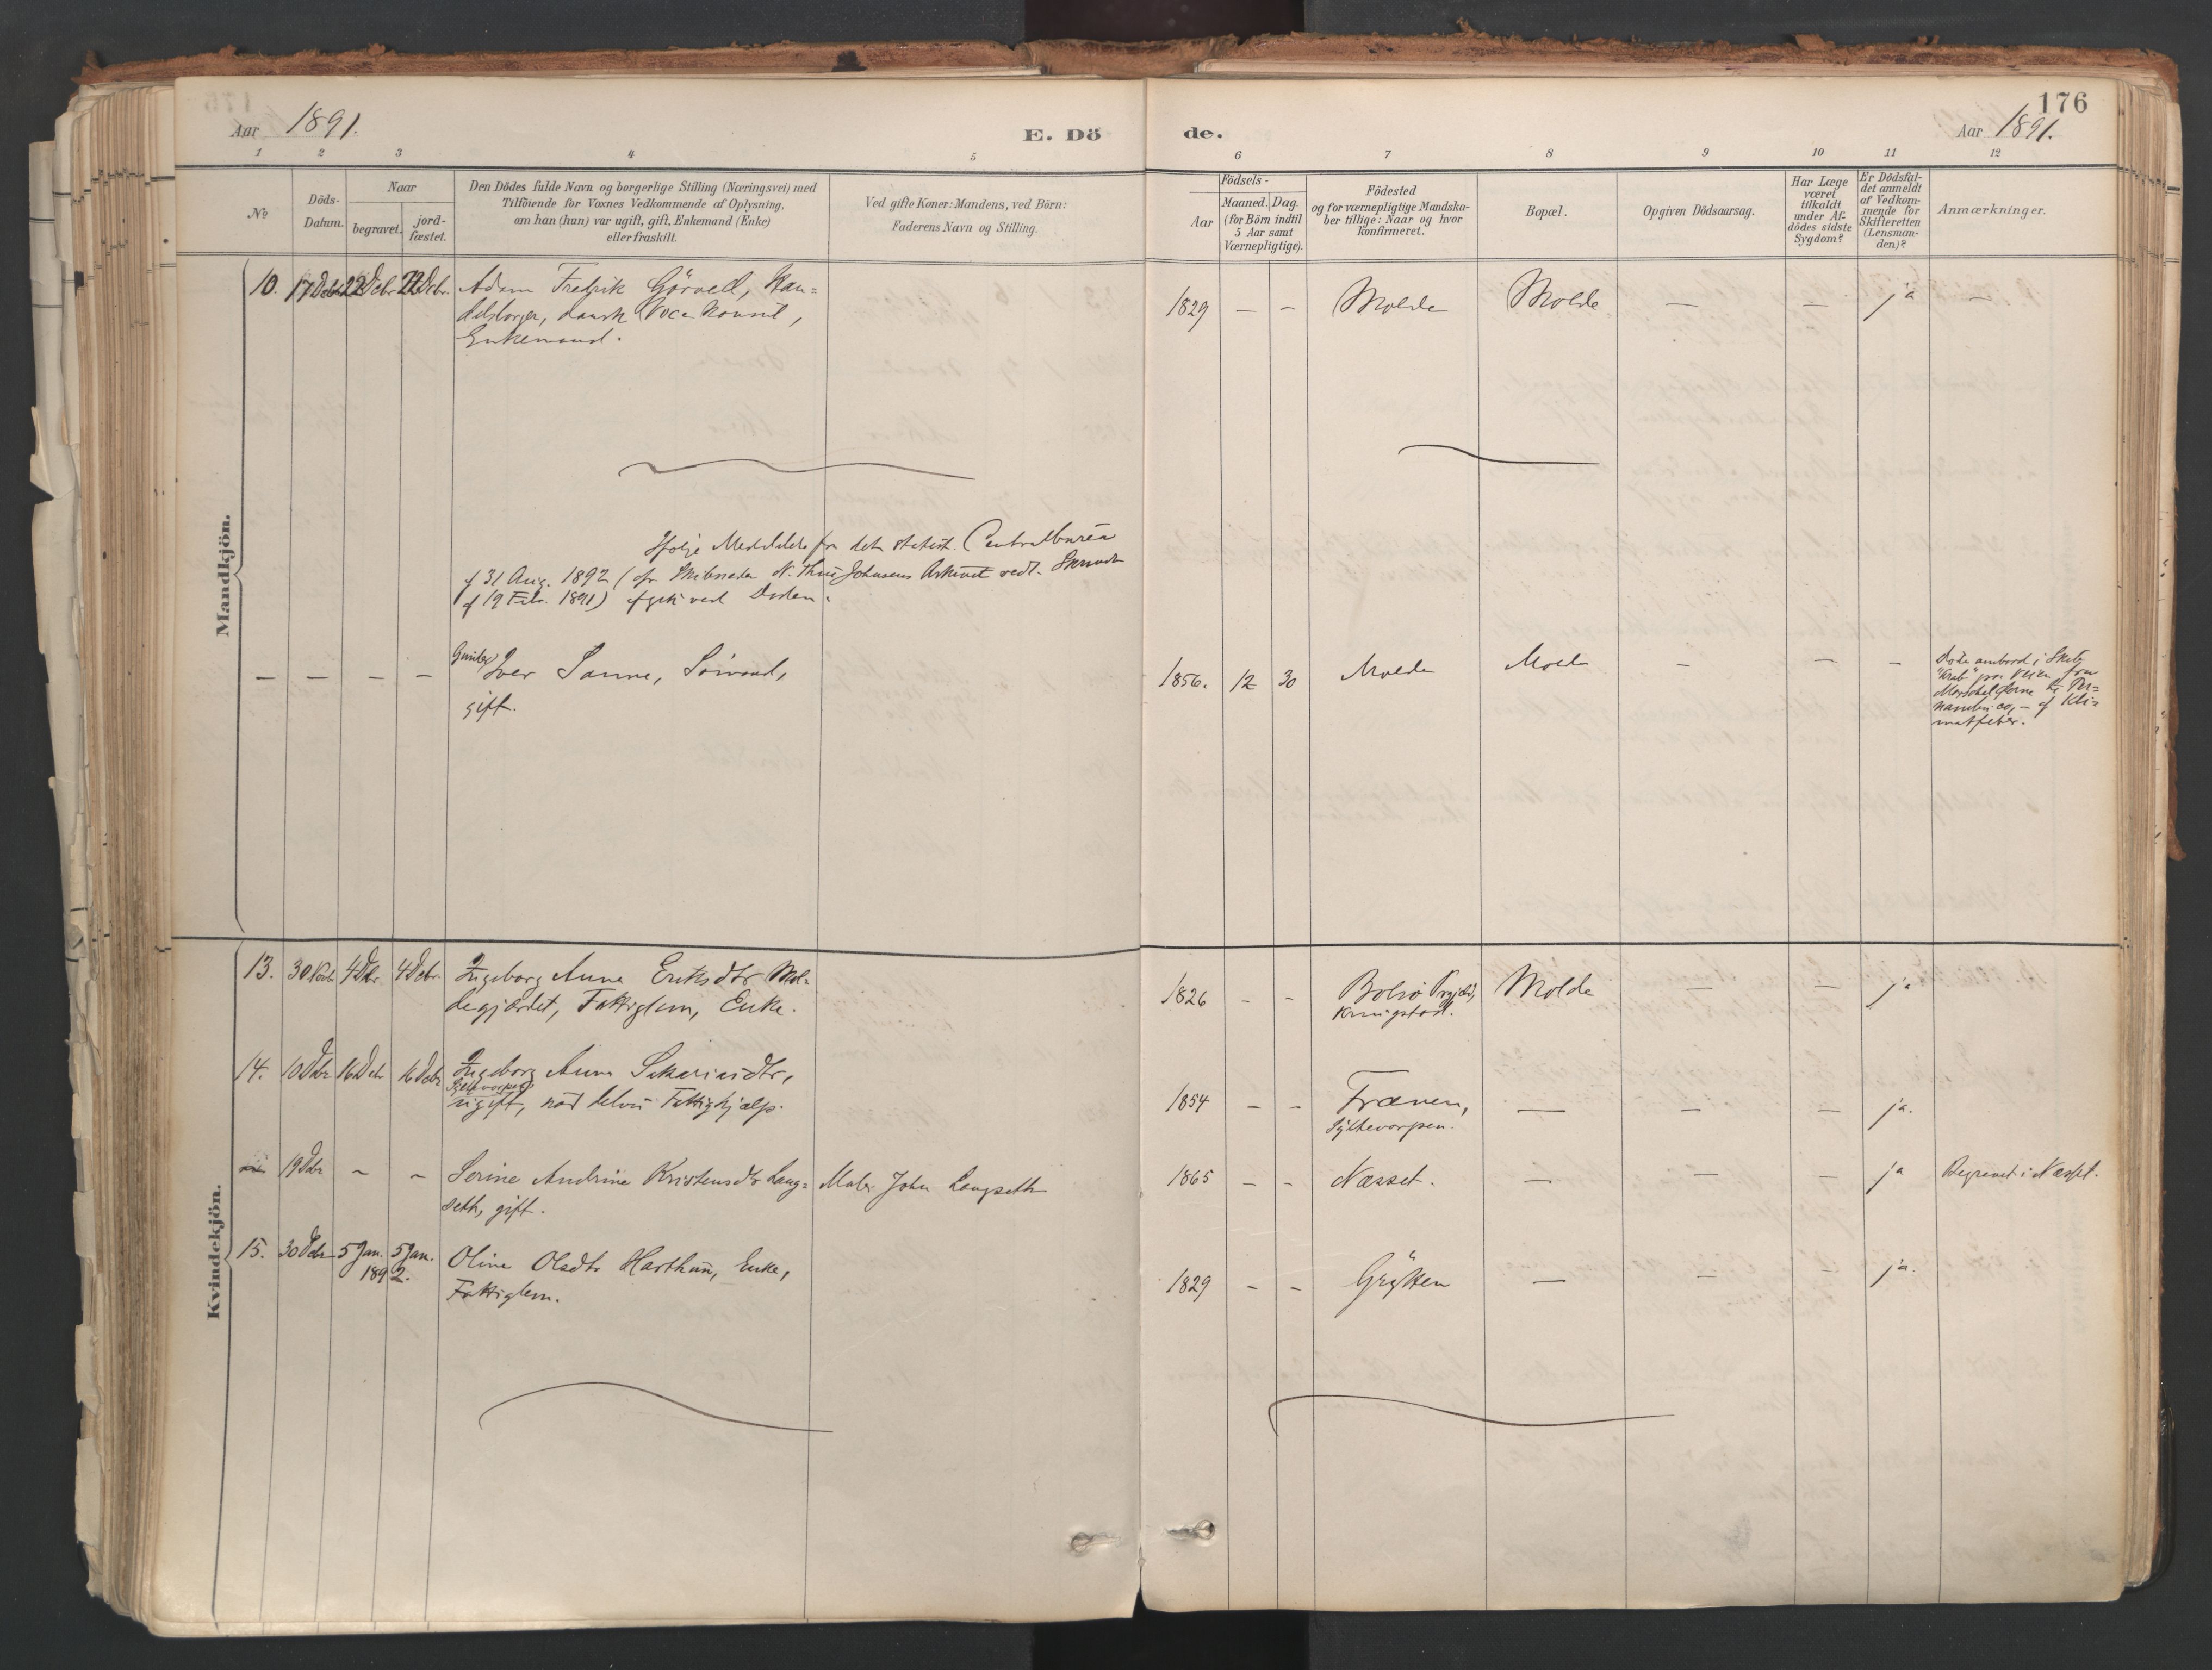 176
Aar 1891.
E. Dö
de.
Aar 1891.
1 2 3 4 5 6 7 8 9 10 11 12
№
Döds-
Datum.
Naar
begravet.
jord-
fæstet.
Den Dödes fulde Navn og borgerlige Stilling (Næringsvei) med
Tilföiende for Voxnes Vedkommende af Oplysning,
om han (hun) var ugift, gift, Enkemand (Enke)
eller fraskilt.
Ved gifte Koner: Mandens, ved Börn:
Faderens Navn og Stilling.
Födsels-
Aar
Maaned. Dag.
(for Börn indtil
5 Aar samt
Værnepligtige).
Födested
og for værnepligtige Mandska-
ber tillige: Naar og hvor
konfirmeret.
Bopæl.
Opgiven Dödsaarsag.
Har Læge
været
tilkaldt
under Af-
dödes sidste
Sygdom?
Er Dödsfal-
det anmeldt
af Vedkom-
mende for
Skifteretten
(Lensman-
den)?
Anmærkninger.
Mandkjön.
10. 17 Debr 22 Debr 22 Debr. Adam Fredrik Görved, Han=
delsborger, dansk Vice Konsul,
Enkemand.
1829 — — Molde Molde — — ja —
Ifølge Meddelelse fra det statist. Centralbureau
af 31 Aug. 1892 (
af 19 Febr. 1891) afgik ved Døden:
— — — — Iver Sanne, Sømand,
gift.
1856. 12 30 Molde Molde — — —
Døde ombord i Skib
paa Veien fra
til Per=
nambuco, — af Kli=
matfeber.
Kvindekjön.
13. 30 Novbr 4 Dbr 4 Debr. Ingeborg Anna Eriksdtr Mol=
degjærdet, Fattiglem, Enke.
1826 — — Bolsø Prgjeld,
Kringstad.
Molde — — ja
14. 10 Dbr 16 Debr 16 Debr Ingeborg Anna Sakariasdtr,
Syltevorpen
ugift, nød delvis Fattighjælp.
1854 — — Frænen,
Syltevorpen.
— — — ja.
19 Dbr – – Serine Andrine Kristensdtr Lang=
seth, gift.
Maler John Langseth
1865 — — Næsset. — — — ja Begravet i Næsset.
15. 30 Debr 5 Jan. 5 Jan.
1892.
Oline Olsdtr Harthun, Enke,
Fattiglem.
1829 — — Grytten — — — ja.